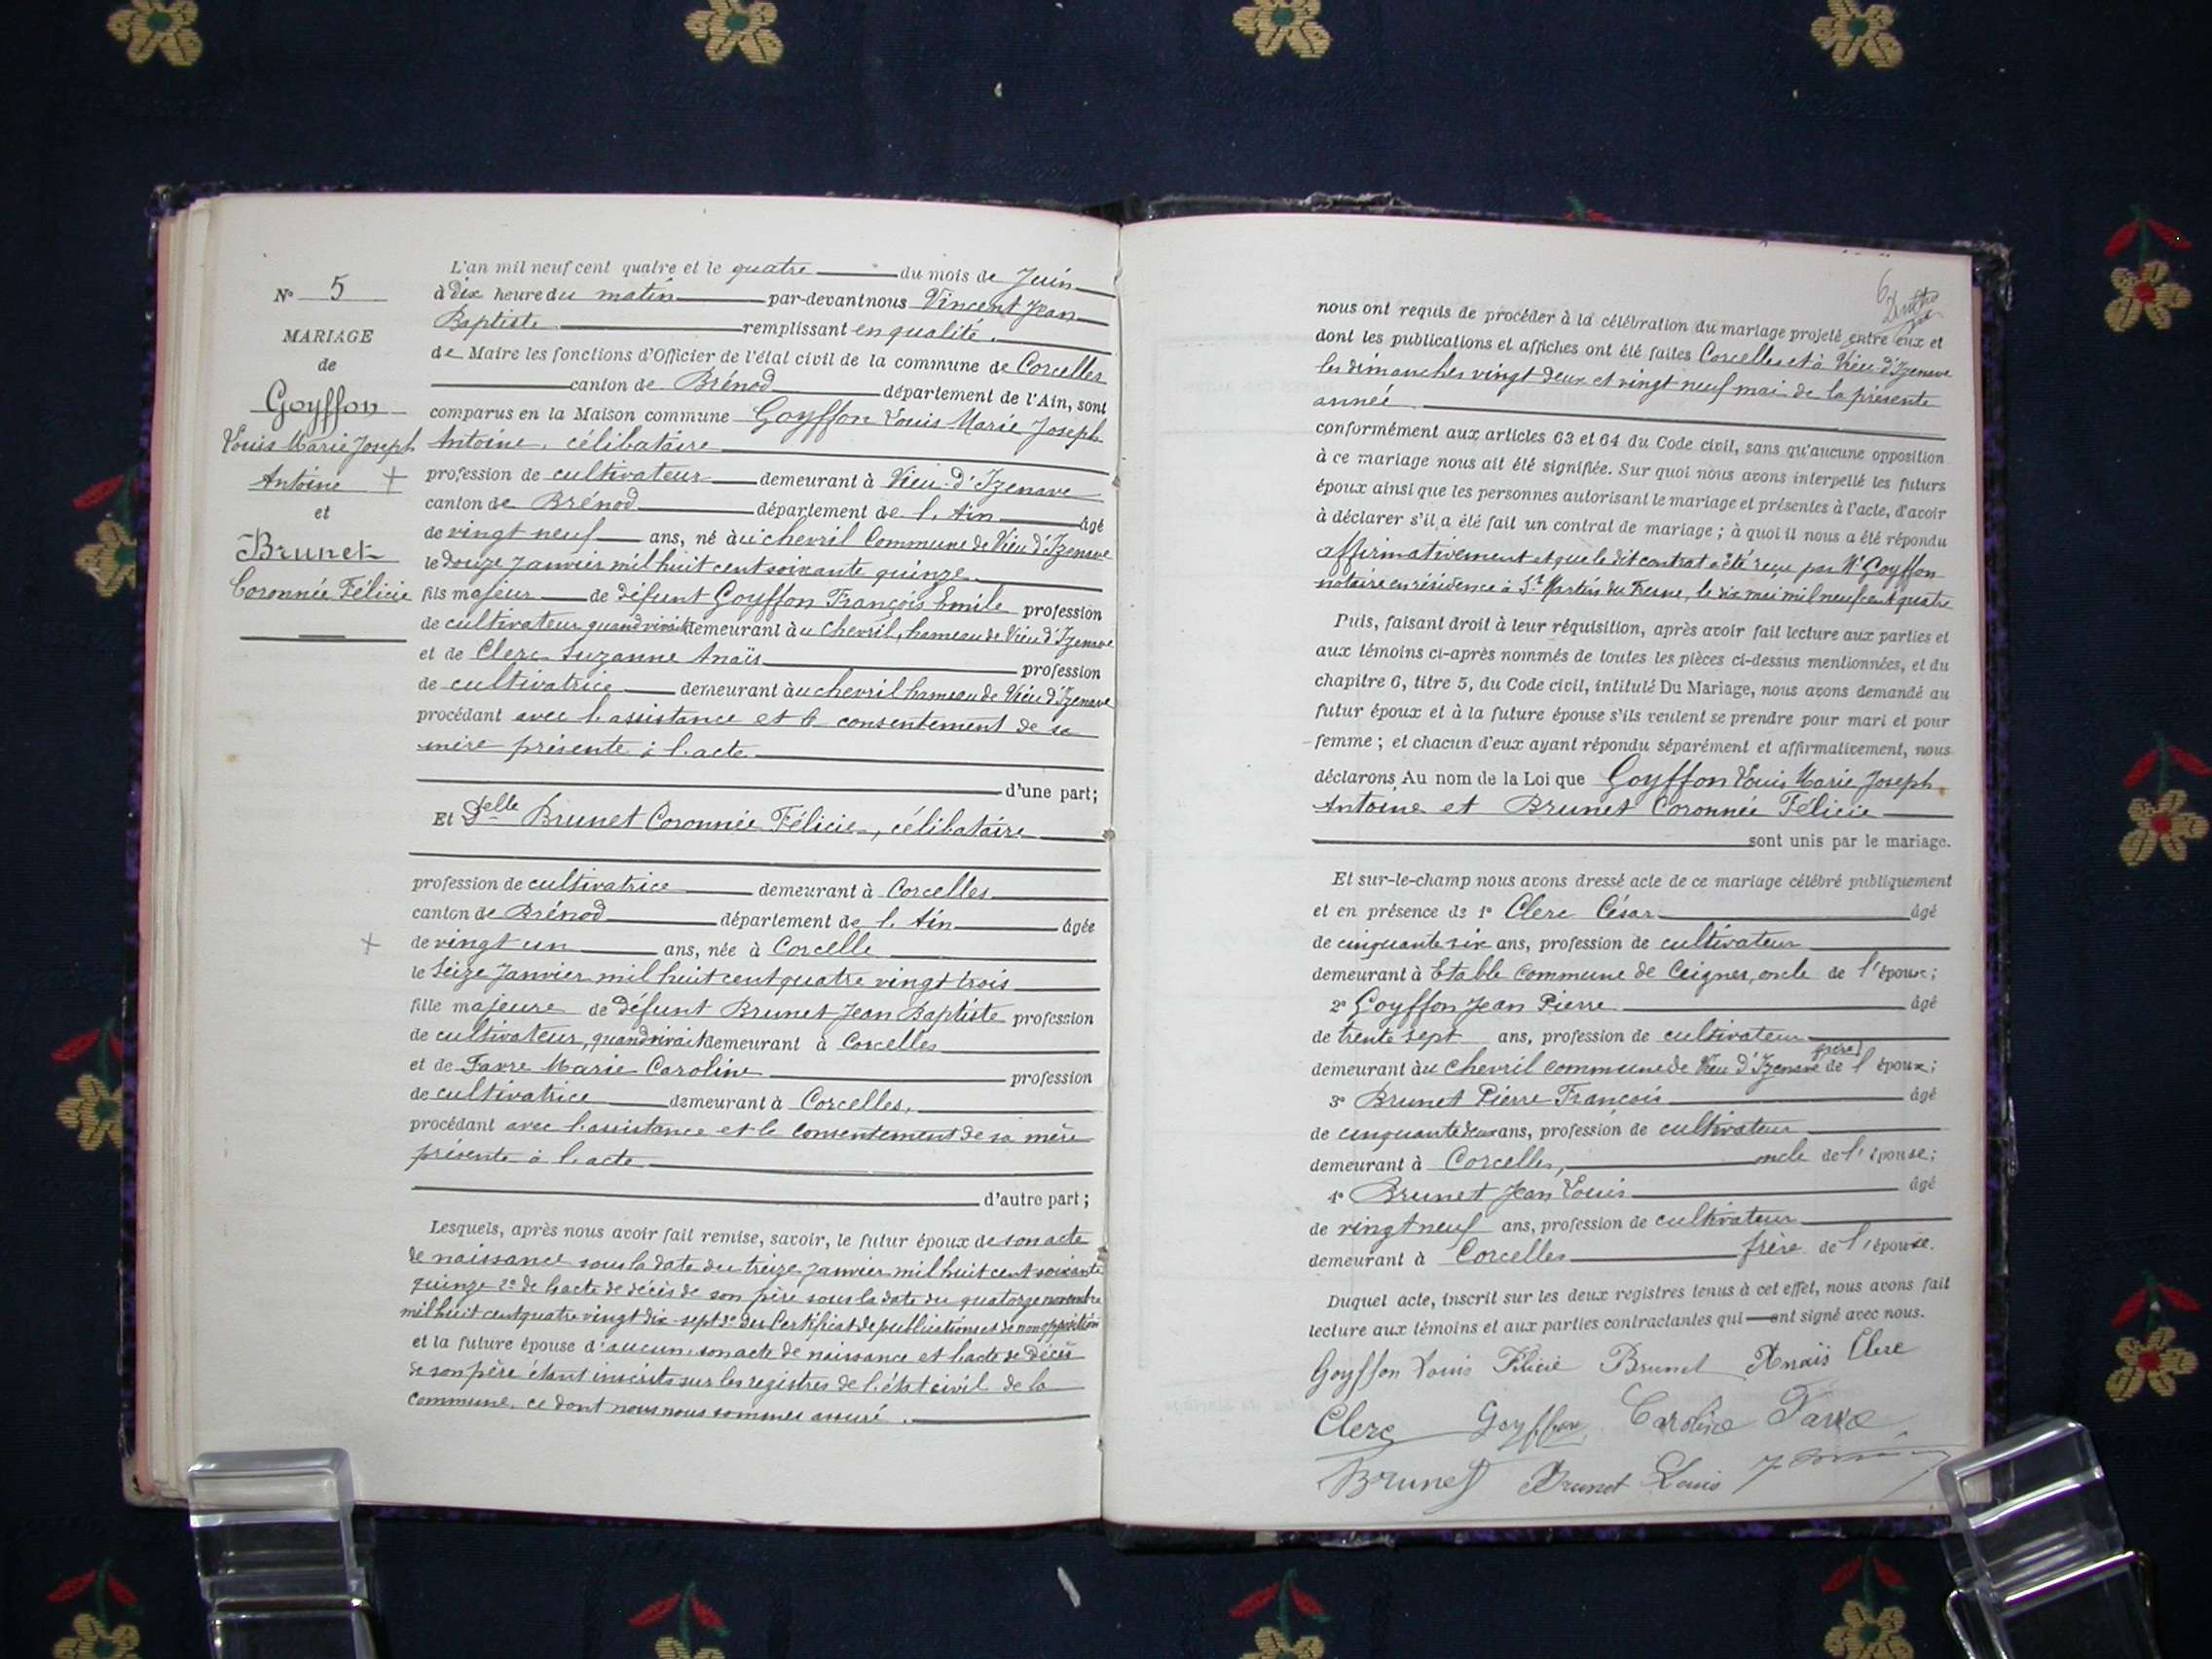 N° 5
MARIAGE
de
Goyffon
Louis Marie Joseph
Antoine +
et
Brunet
Coronnée Félicie
L'an mil neuf cent quatre et le quatre du mois de Juin
à dix heure du matin par-devant nous Vincent Jean
Baptiste remplissant en qualité
de Maire les fonctions d'Officier de l'état civil de la commune de Corcelles
canton de Brénod département de l'Ain, sont
comparus en la Maison commune Goyffon Louis Marie Joseph
Antoine, célibataire
profession de cultivateur demeurant à Vieu-d'Izenave
canton de Brénod département de l'Ain âgé
de vingt neuf ans, né àu chevril Commune de Vieu d'Izenave
le douze Janvier mil huit cent soixante quinze
fils majeur de défunt Goyffon François Emile profession
de cultivateur quand vivait demeurant àu Chevril, hameau de Vieu d'Izenave
et de Clerc Suzanne Anaïs profession
de cultivatrice demeurant àu chevril hameau de Vieu d'Izenave
procédant avec l'assistance et le consentement de sa
mère présente à l'acte
d'une part;
Et Delle Brunet Coronnée Félicie, célibataire
profession de cultivatrice demeurant à Corcelles
canton de Brénod département de l'Ain âgée
+ de vingt un ans, née à Corcelle
le Seize Janvier mil huit cent quatre vingt trois
fille majeure de défunt Brunet Jean Baptiste profession
de cultivateur, quand vivait demeurant à Corcelles
et de Favre Marie Caroline profession
de cultivatrice demeurant à Corcelles,
procédant avec l'assistance et le consentement de sa mère
présente à l'acte
d'autre part;
Lesquels, après nous avoir fait remise, savoir, le futur époux de son acte
de naissance sous la date du treize janvier mil huit cent soixante
quinze 2° de l'acte de décès de son père sous la date du quatorze novembre
mil huit cent quatre vingt dix-sept 3° du Certificat de publications et de non opposition
et la future épouse d'aucun, son acte de naissance et l'acte de décès
de son père étant inscrits sur les registres de l'état civil de la
commune, ce dont nous nous sommes assuré.
6
nous ont requis de procéder à la célébration du mariage projeté entre eux et
dont les publications et affiches ont été faites Corcelles et à Vieu-d'Izenave
les dimanches vingt deux et vingt neuf mai de la présente
année
conformément aux articles 63 et 64 du Code civil, sans qu'aucune opposition
à ce mariage nous ait été signifiée. Sur quoi nous avons interpellé les futurs
époux ainsi que les personnes autorisant le mariage et présentes à l'acte, d'avoir
à déclarer s'il a été fait un contrat de mariage; à quoi il nous a été répondu
affirmativement et que le dit contrat a été reçu par Me Goyffon
notaire en résidence à St Martin du Fresne, le dix mai mil neuf cent quatre
Puis, faisant droit à leur réquisition, après avoir fait lecture aux parties et
aux témoins ci-après nommés de toutes les pièces ci-dessus mentionnées, et du
chapitre 6, titre 5, du Code civil, intitulé Du Mariage, nous avons demandé au
futur époux et à la future épouse s'ils veulent se prendre pour mari et pour
femme; et chacun d'eux ayant répondu séparément et affirmativement, nous
déclarons Au nom de la Loi que Goyffon Louis Marie Joseph
Antoine et Brunet Coronnée Félicie
sont unis par le mariage.
Et sur-le-champ nous avons dressé acte de ce mariage célébré publiquement
et en présence de 1° Clerc César âgé
de cinquante six ans, profession de cultivateur
demeurant à Etable commune de Ceignes, oncle de l'époux;
2° Goyffon Jean Pierre âgé
de trente sept ans, profession de cultivateur
demeurant àu Chevril commune de Vieu d'Izenave frère de l'époux;
3° Brunet Pierre François âgé
de cinquante deux ans, profession de cultivateur
demeurant à Corcelles, oncle de l'épouse;
4° Brunet Jean Louis âgé
de vingt neuf ans, profession de cultivateur
demeurant à Corcelles frère de l'épouse.
Duquel acte, inscrit sur les deux registres tenus à cet effet, nous avons fait
lecture aux témoins et aux parties contractantes qui ont signé avec nous.
Goyffon Louis Félicie Brunet Anaïs Clerc
Clerc Goyffon Caroline Favre
Brunet Brunet Louis